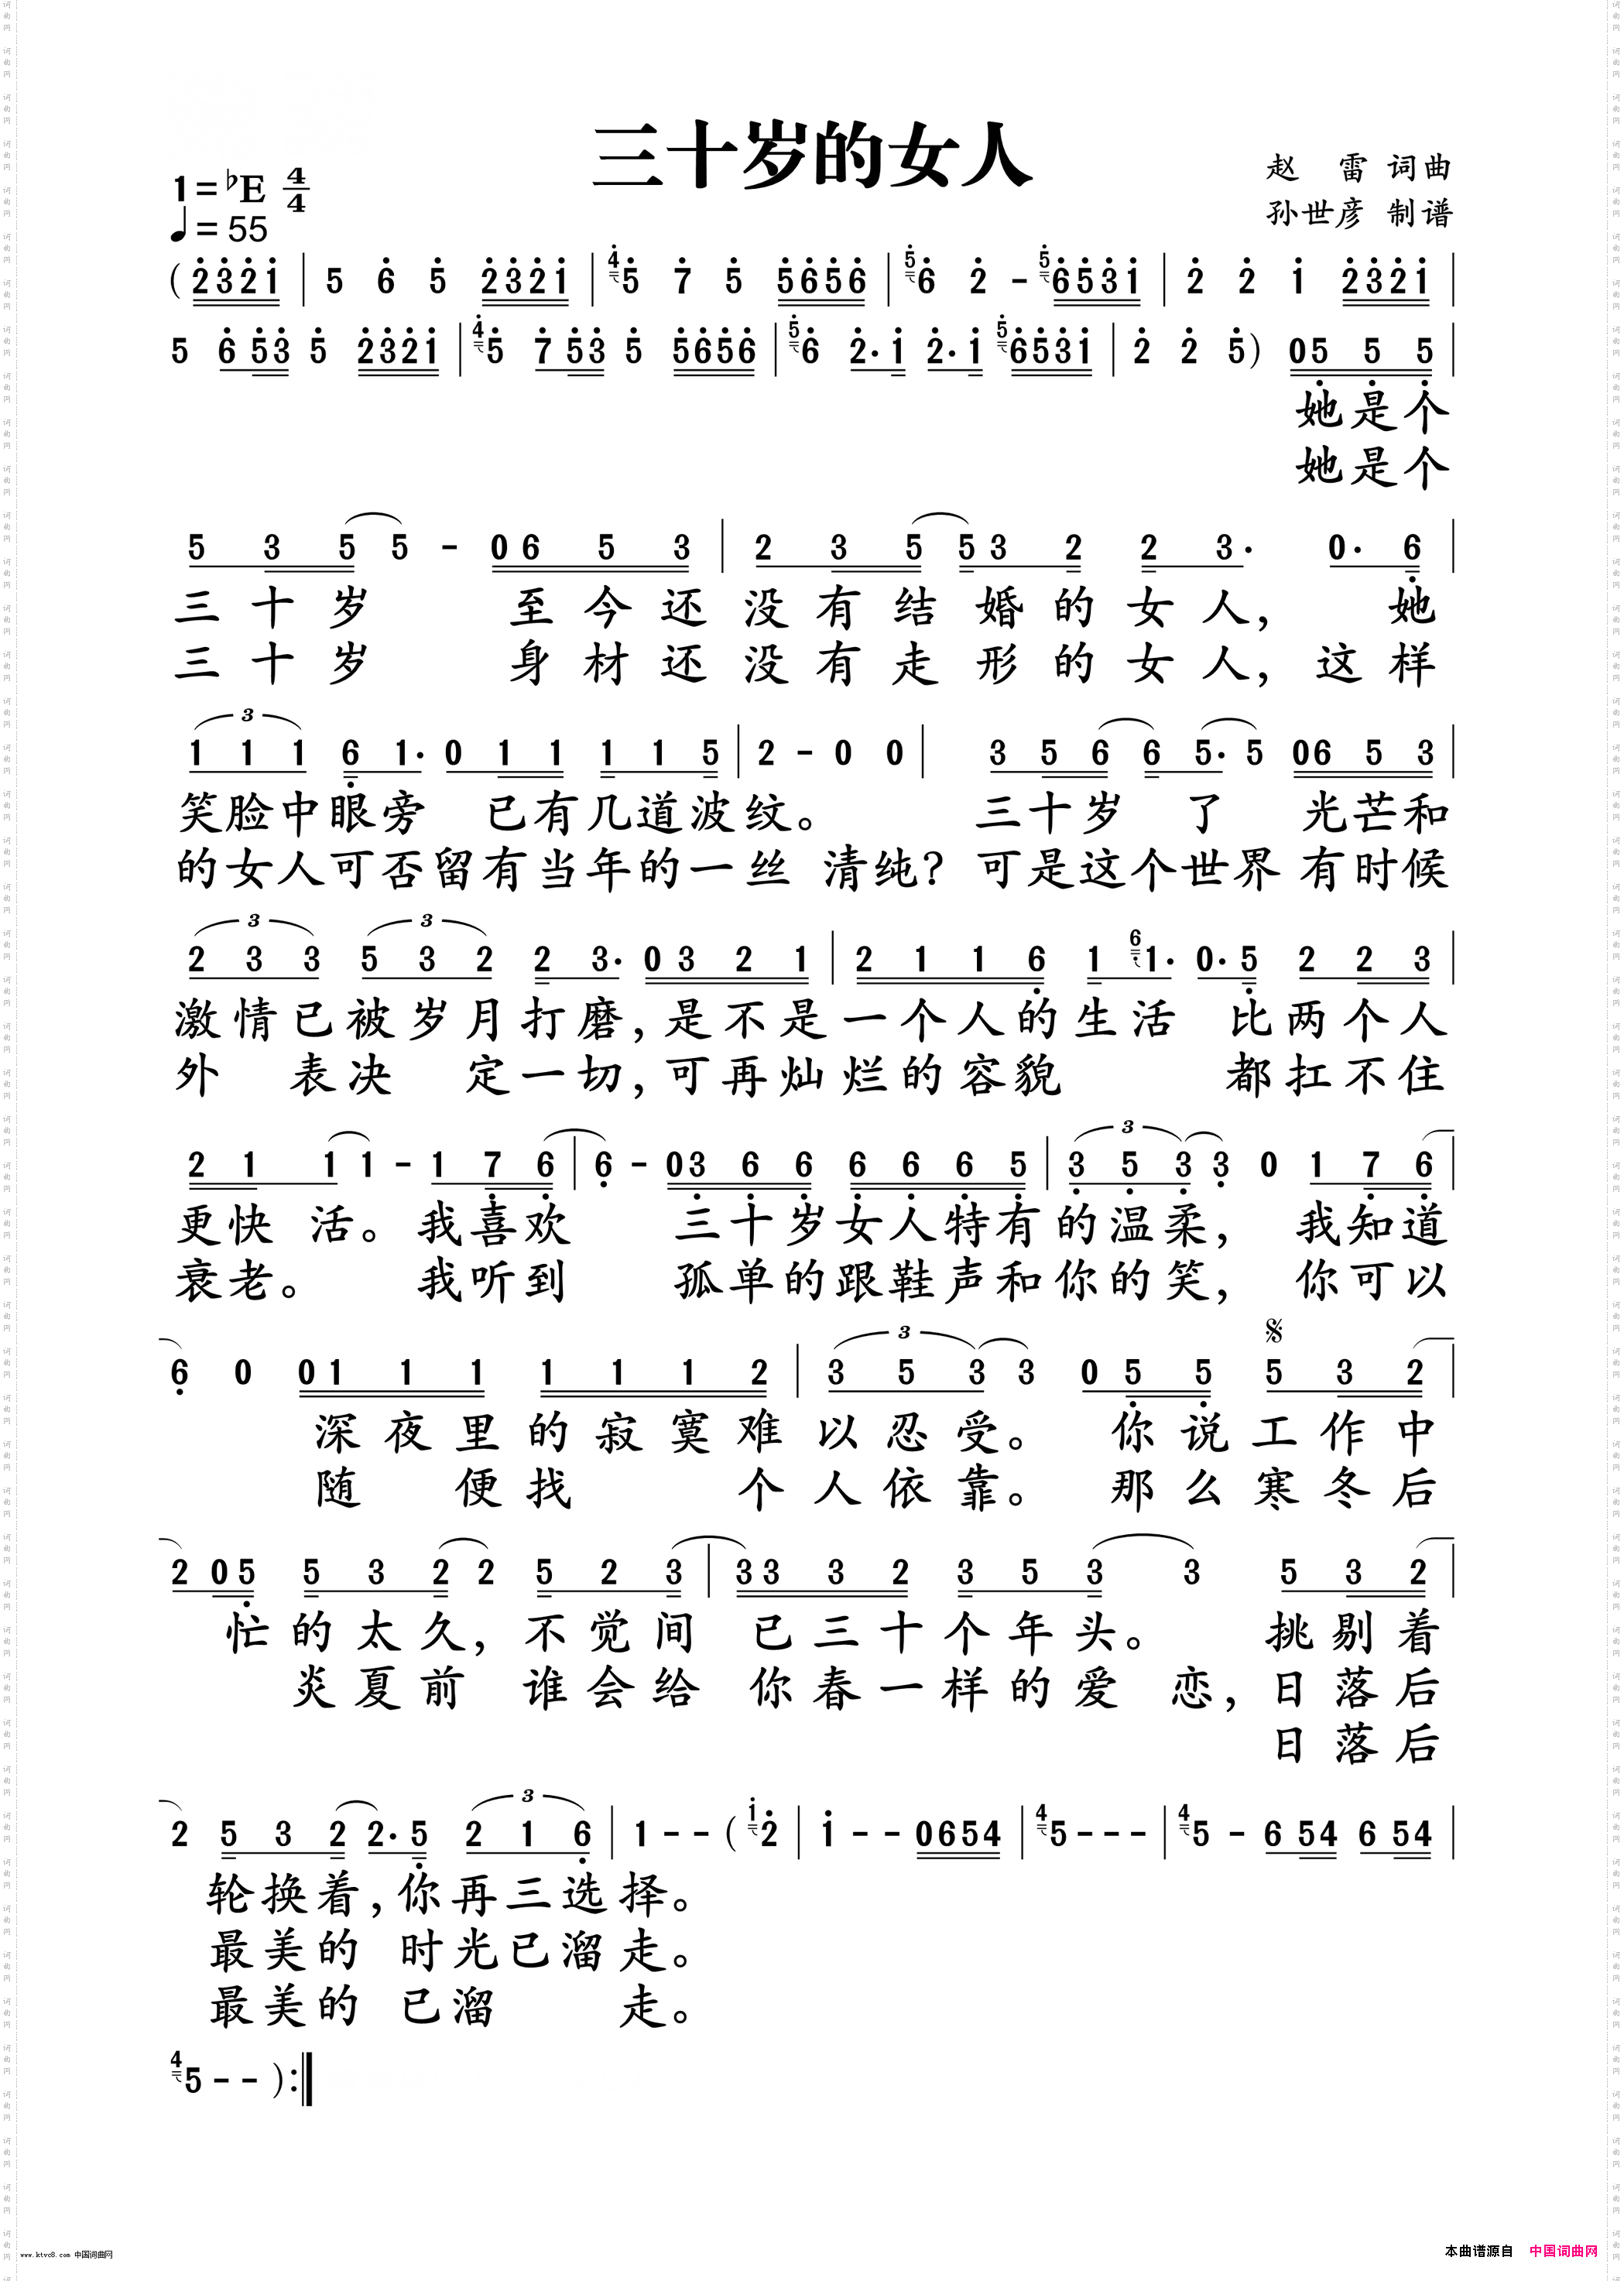 三十岁的女人
1=♭E 4/4
赵 雷 词曲
♩=55
孙世彦 制谱
( 2321 | 5 6 5 2321 | 4 5 7 5 5656 | 5 6 2 - 5 6531 | 2 2 1 2321 |
5 6 53 5 2321 | 4 5 7 53 5 5656 | 5 6 2· 1 2· 1 5 6531 | 2 2 5 ) 05 5 5 |
她是个
她是个
5 3 5 5 - 06 5 3 | 2 3 5 53 2 2 3· 0· 6 |
三十岁 至今还没有结婚的女人, 她
三十岁 身材还没有走形的女人, 这样
3
1 1 1 6 1· 0 1 1 1 1 5 | 2 - 0 0 | 3 5 6 6 5· 5 06 5 3 |
笑脸中眼旁 已有几道波纹。 三十岁 了 光芒和
的女人可否留有当年的一丝 清纯? 可是这个世界 有时候
3 3
2 3 3 5 3 2 2 3· 0 3 2 1 | 2 1 1 6 1 6 1· 0· 5 2 2 3 |
激情已被岁月打磨, 是不是一个人的生活 比两个人
外 表决 定一切, 可再灿烂的容貌 都扛不住
3
2 1 1 1 - 1 7 6 | 6 - 03 6 6 6 6 6 5 | 3 5 3 3 0 1 7 6 |
更快 活。我喜欢 三十岁女人特有的温柔, 我知道
衰老。 我听到 孤单的跟鞋声和你的笑, 你可以
3 𝄋
6 0 01 1 1 1 1 1 2 | 3 5 3 3 0 5 5 5 3 2 |
深夜里的寂寞难以忍受。 你说工作中
随 便找 个人依靠。 那么寒冬后
2 05 5 3 2 2 5 2 3 | 33 3 2 3 5 3 3 5 3 2 |
忙的太久, 不觉间 已三十个年头。 挑剔着
炎夏前 谁会给 你春一样的爱 恋, 日落后
日落后
3
2 5 3 2 2· 5 2 1 6 | 1 - - ( 1 2 | 1 - - 0654 | 4 5 - - - | 4 5 - 6 54 6 54 |
轮换着, 你再三选择。
最美的 时光已溜走。
最美的 已溜 走。
4 5 - - ) :‖
www.ktvc8.com 中国词曲网
本曲谱源自 中国词曲网